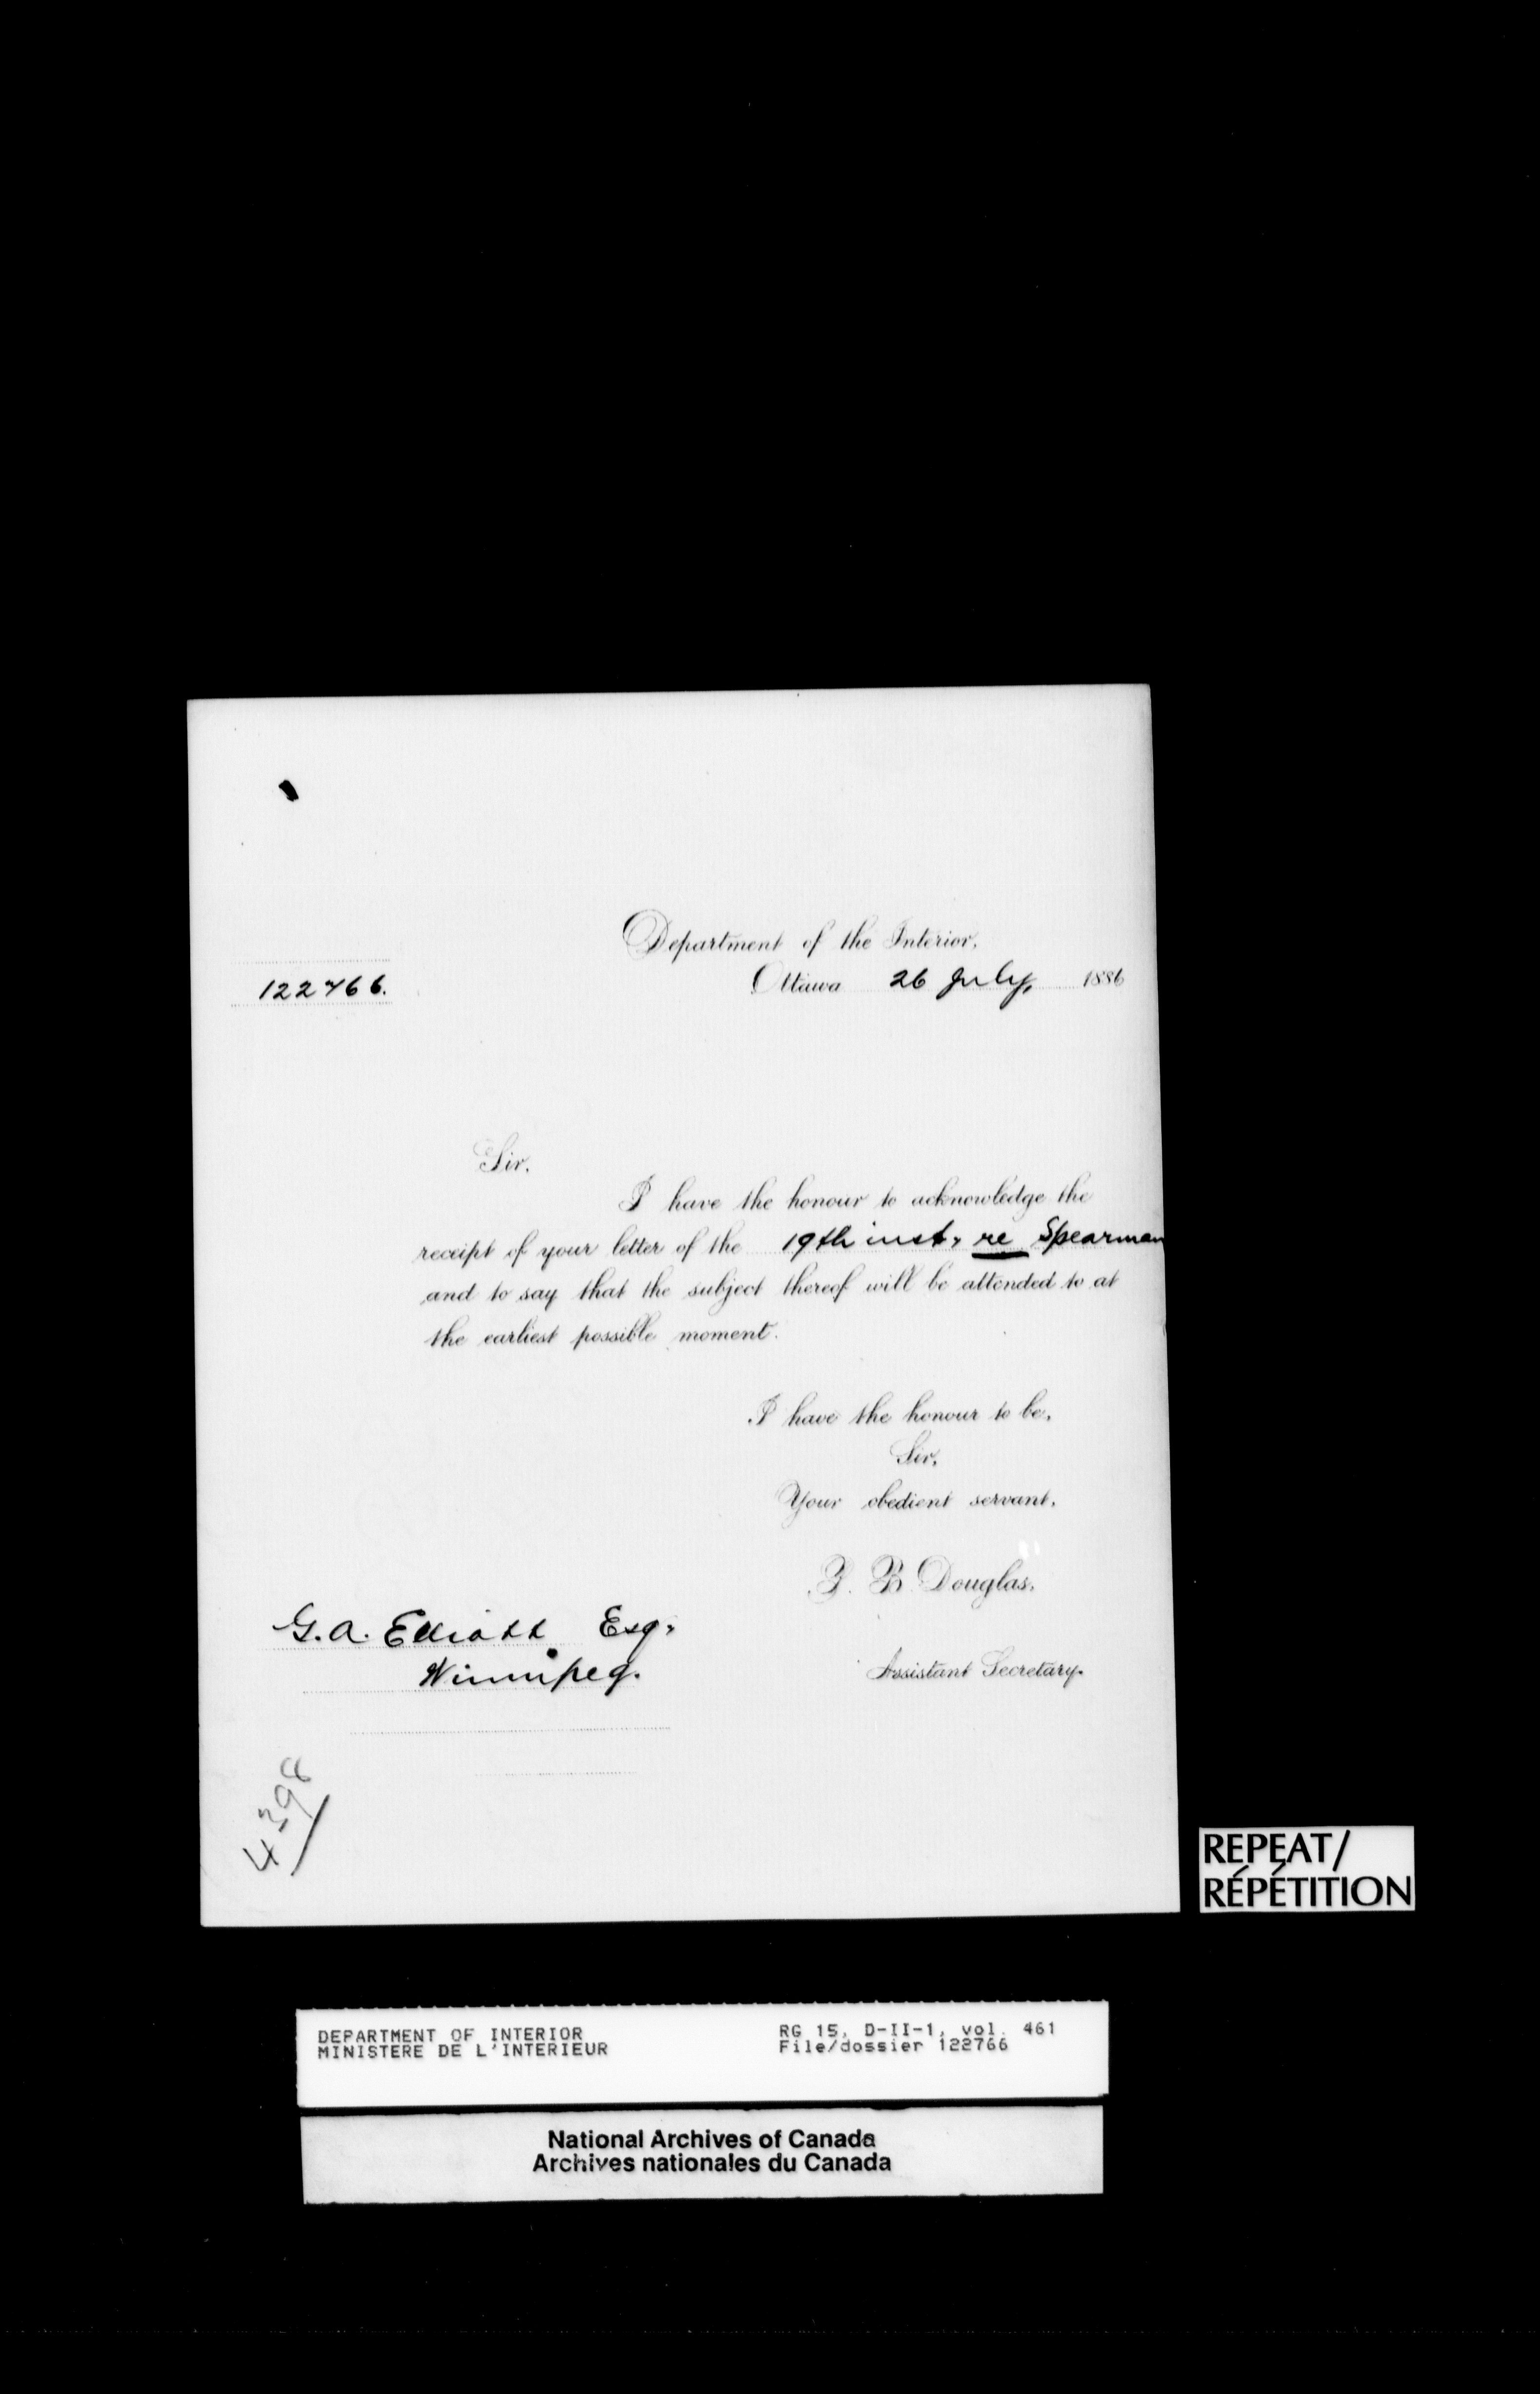 Department of the Interior,
122766.
Ottawa 26 July, 1886
Sir,
I have the honour to acknowledge the
receipt of your letter of the 19th inst, re Spearman
and to say that the subject thereof will be attended to at
the earliest possible moment.
I have the honour to be,
Sir,
Your obedient servant,
P. B. Douglas,
Assistant Secretary.
G. A. Elliott Esq,
Winnipeg.
4398
REPEAT/
RÉPÉTITION
DEPARTMENT OF INTERIOR
MINISTERE DE L'INTERIEUR
RG 15, D-II-1, vol. 461
File/dossier 122766
National Archives of Canada
Archives nationales du Canada